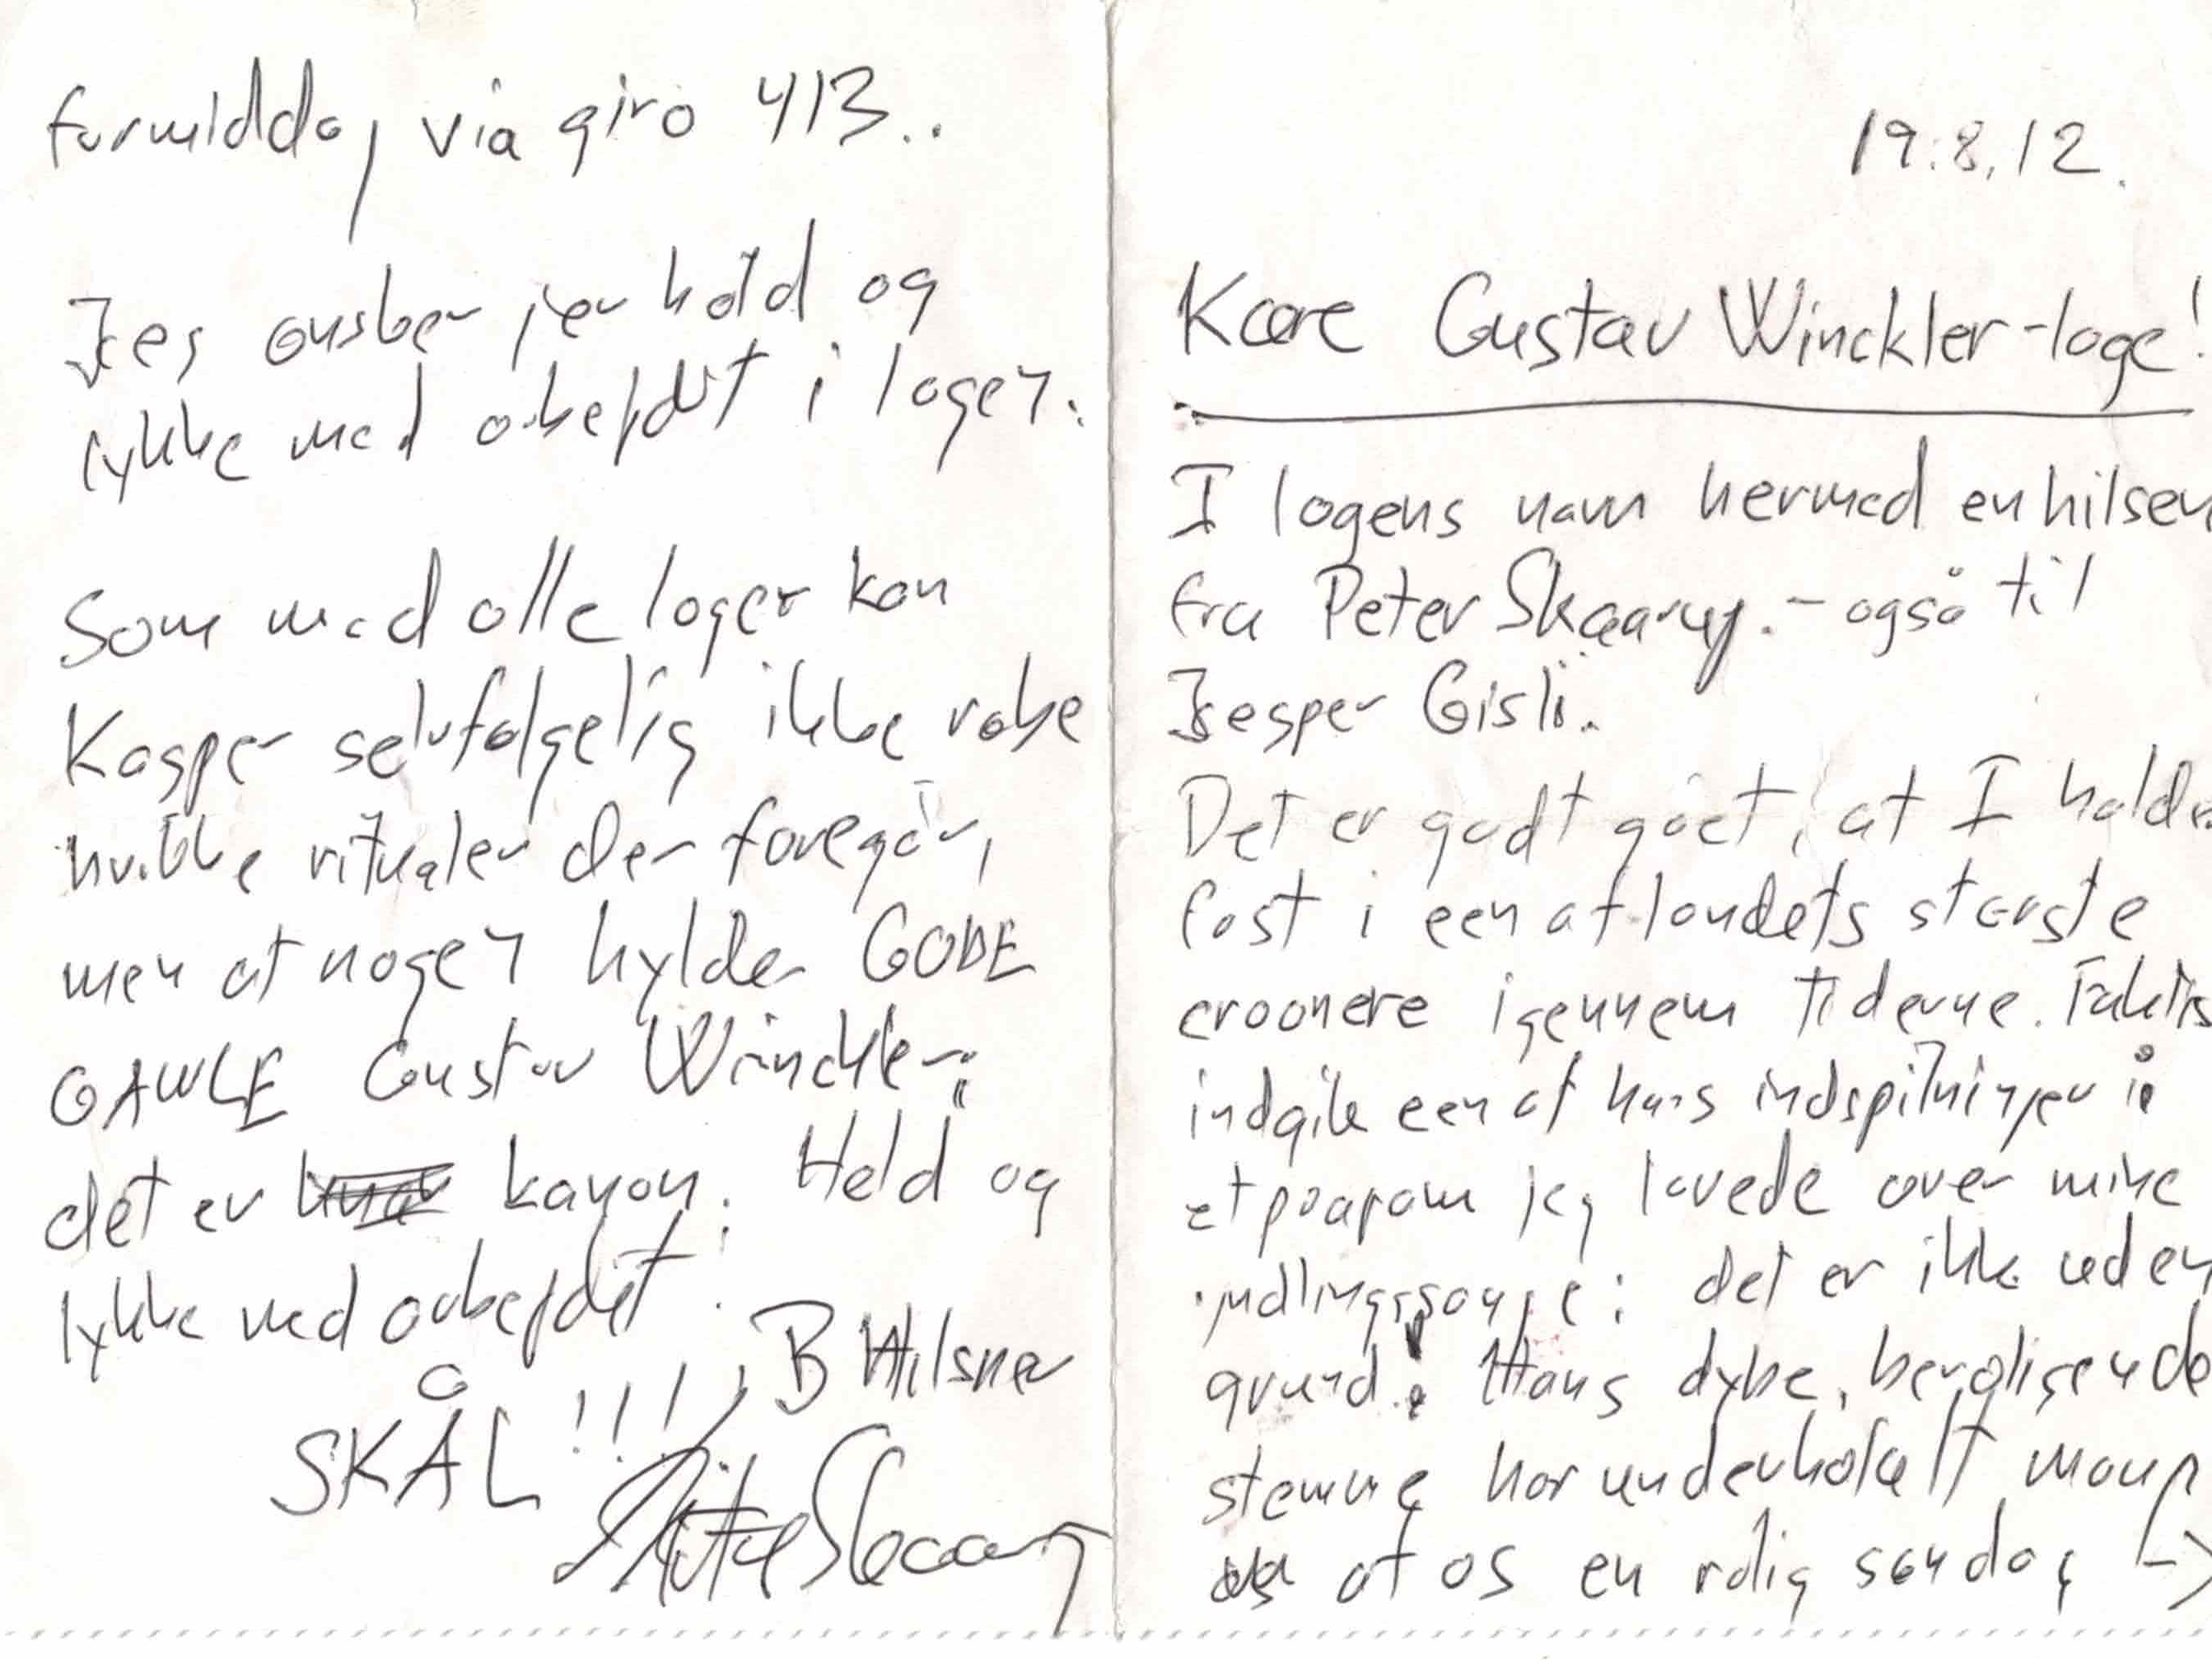 19.8.12.
Kære Gustav Winckler-loge!
I logens navn hermed en hilsen
fra Peter Skaarup. - også til
Jesper Gisli.
Det er godt gået, at I holder
fast i een af landets største
croonere igennem tiderne. Faktisk
indgik een af hans indspilninger i
et program jeg lavede over mine
yndlingssange; det er ikke uden
grund. Hans dybe, beroligende
stemme har underholdt mange
af os en rolig søndag
formiddag via giro 413..
Jeg ønsker jer held og
lykke med arbejdet i logen.
Som med alle loger kan
Kasper selvfølgelig ikke røbe
hvilke ritualer der foregår,
men at nogen hylder GODE
GAMLE Gustav Winckler;
det er kanon. Held og
lykke med arbejdet.
SKÅL!!!!
B Hilsner
Peter Skaarup